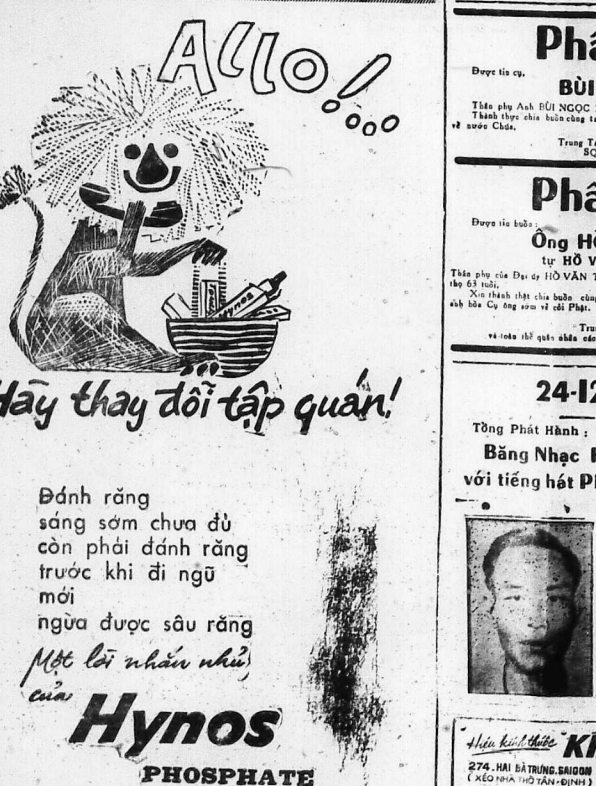 Allo!...
Hynos
Hãy thay đổi tập quán!
Đánh răng
sáng sớm chưa đủ
còn phải đánh răng
trước khi đi ngũ
mới
ngừa được sâu răng
Một lời nhắn nhủ
của
Hynos
PHOSPHATE
Phâ
Được tin cụ,
BÙI
Thân phụ Anh BÙI NGỌC
Thành thực chia buồn cùng
về nước Chúa,
Trung
Phâ
Được tin buồn:
Ông H
tự HỒ V
Thân phụ của Đại úy HỒ VĂN T
thọ 63 tuổi,
Xin thành thật chia buồn cùng
Cụ ông sớm về cõi Phật.
Tru
và toàn thể quân nhân các
24-12
Tổng Phát Hành :
Băng Nhạc
với tiếng hát P
Hiệu kính thuốc K
274. HAI BÀ TRƯNG. SAIGON
( XÉO NHÀ THỜ TÂN-ĐỊNH )